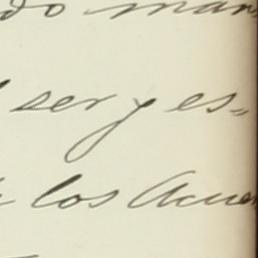 do man
ser y es=
los Acue